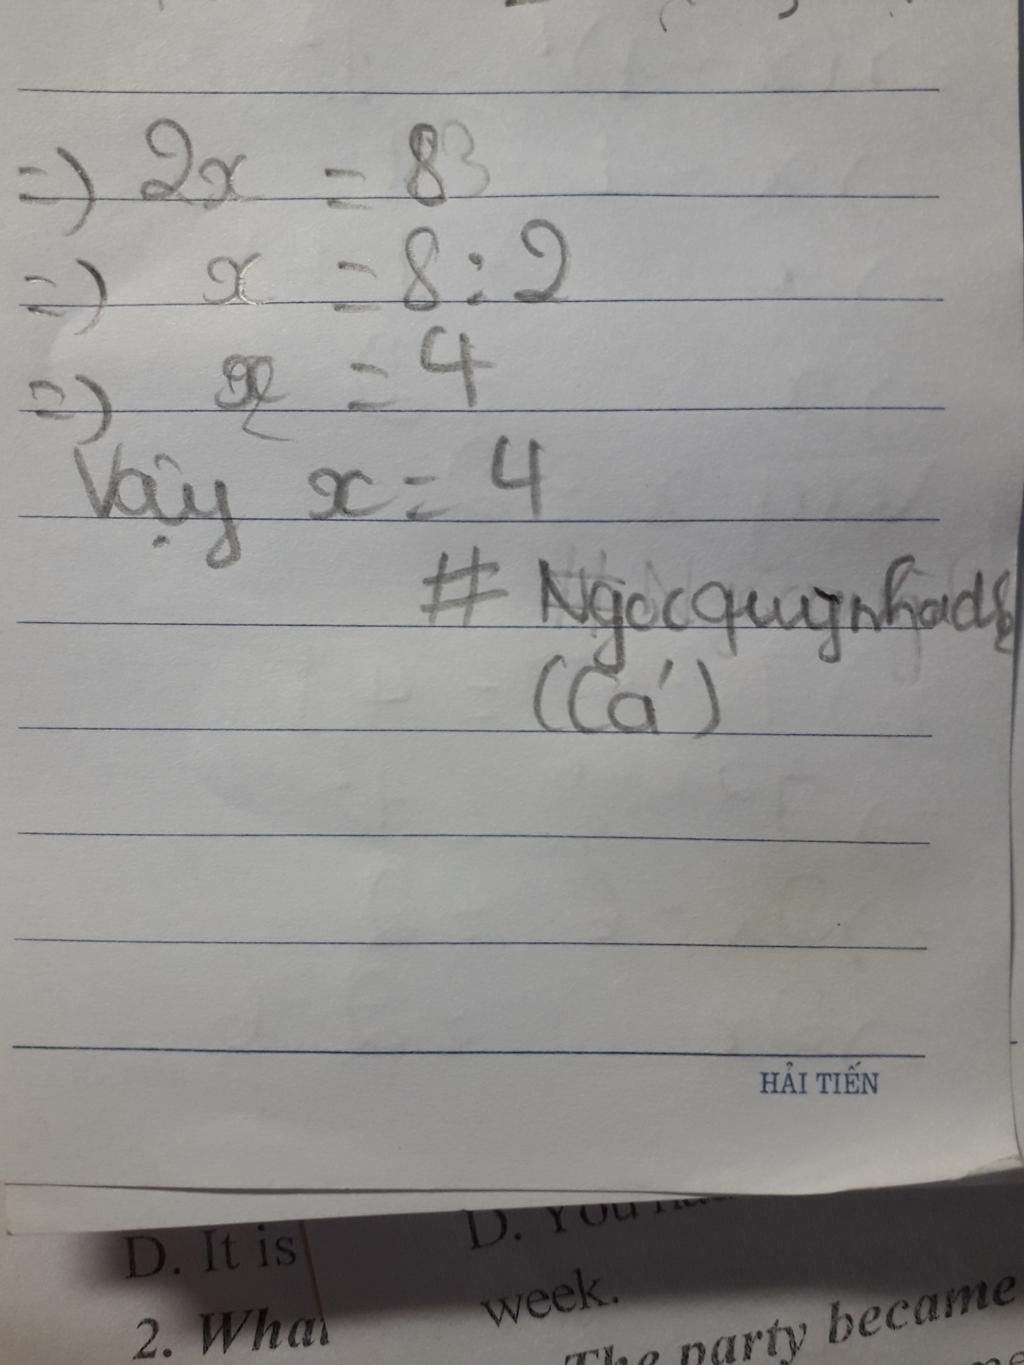 =) 2x = 8
=) x = 8 : 2
=) x = 4
Vậy x = 4
# Ngọcquỳnhad
(Cá)
HẢI TIẾN
D. It is
D. You
2. What
week.
The party became